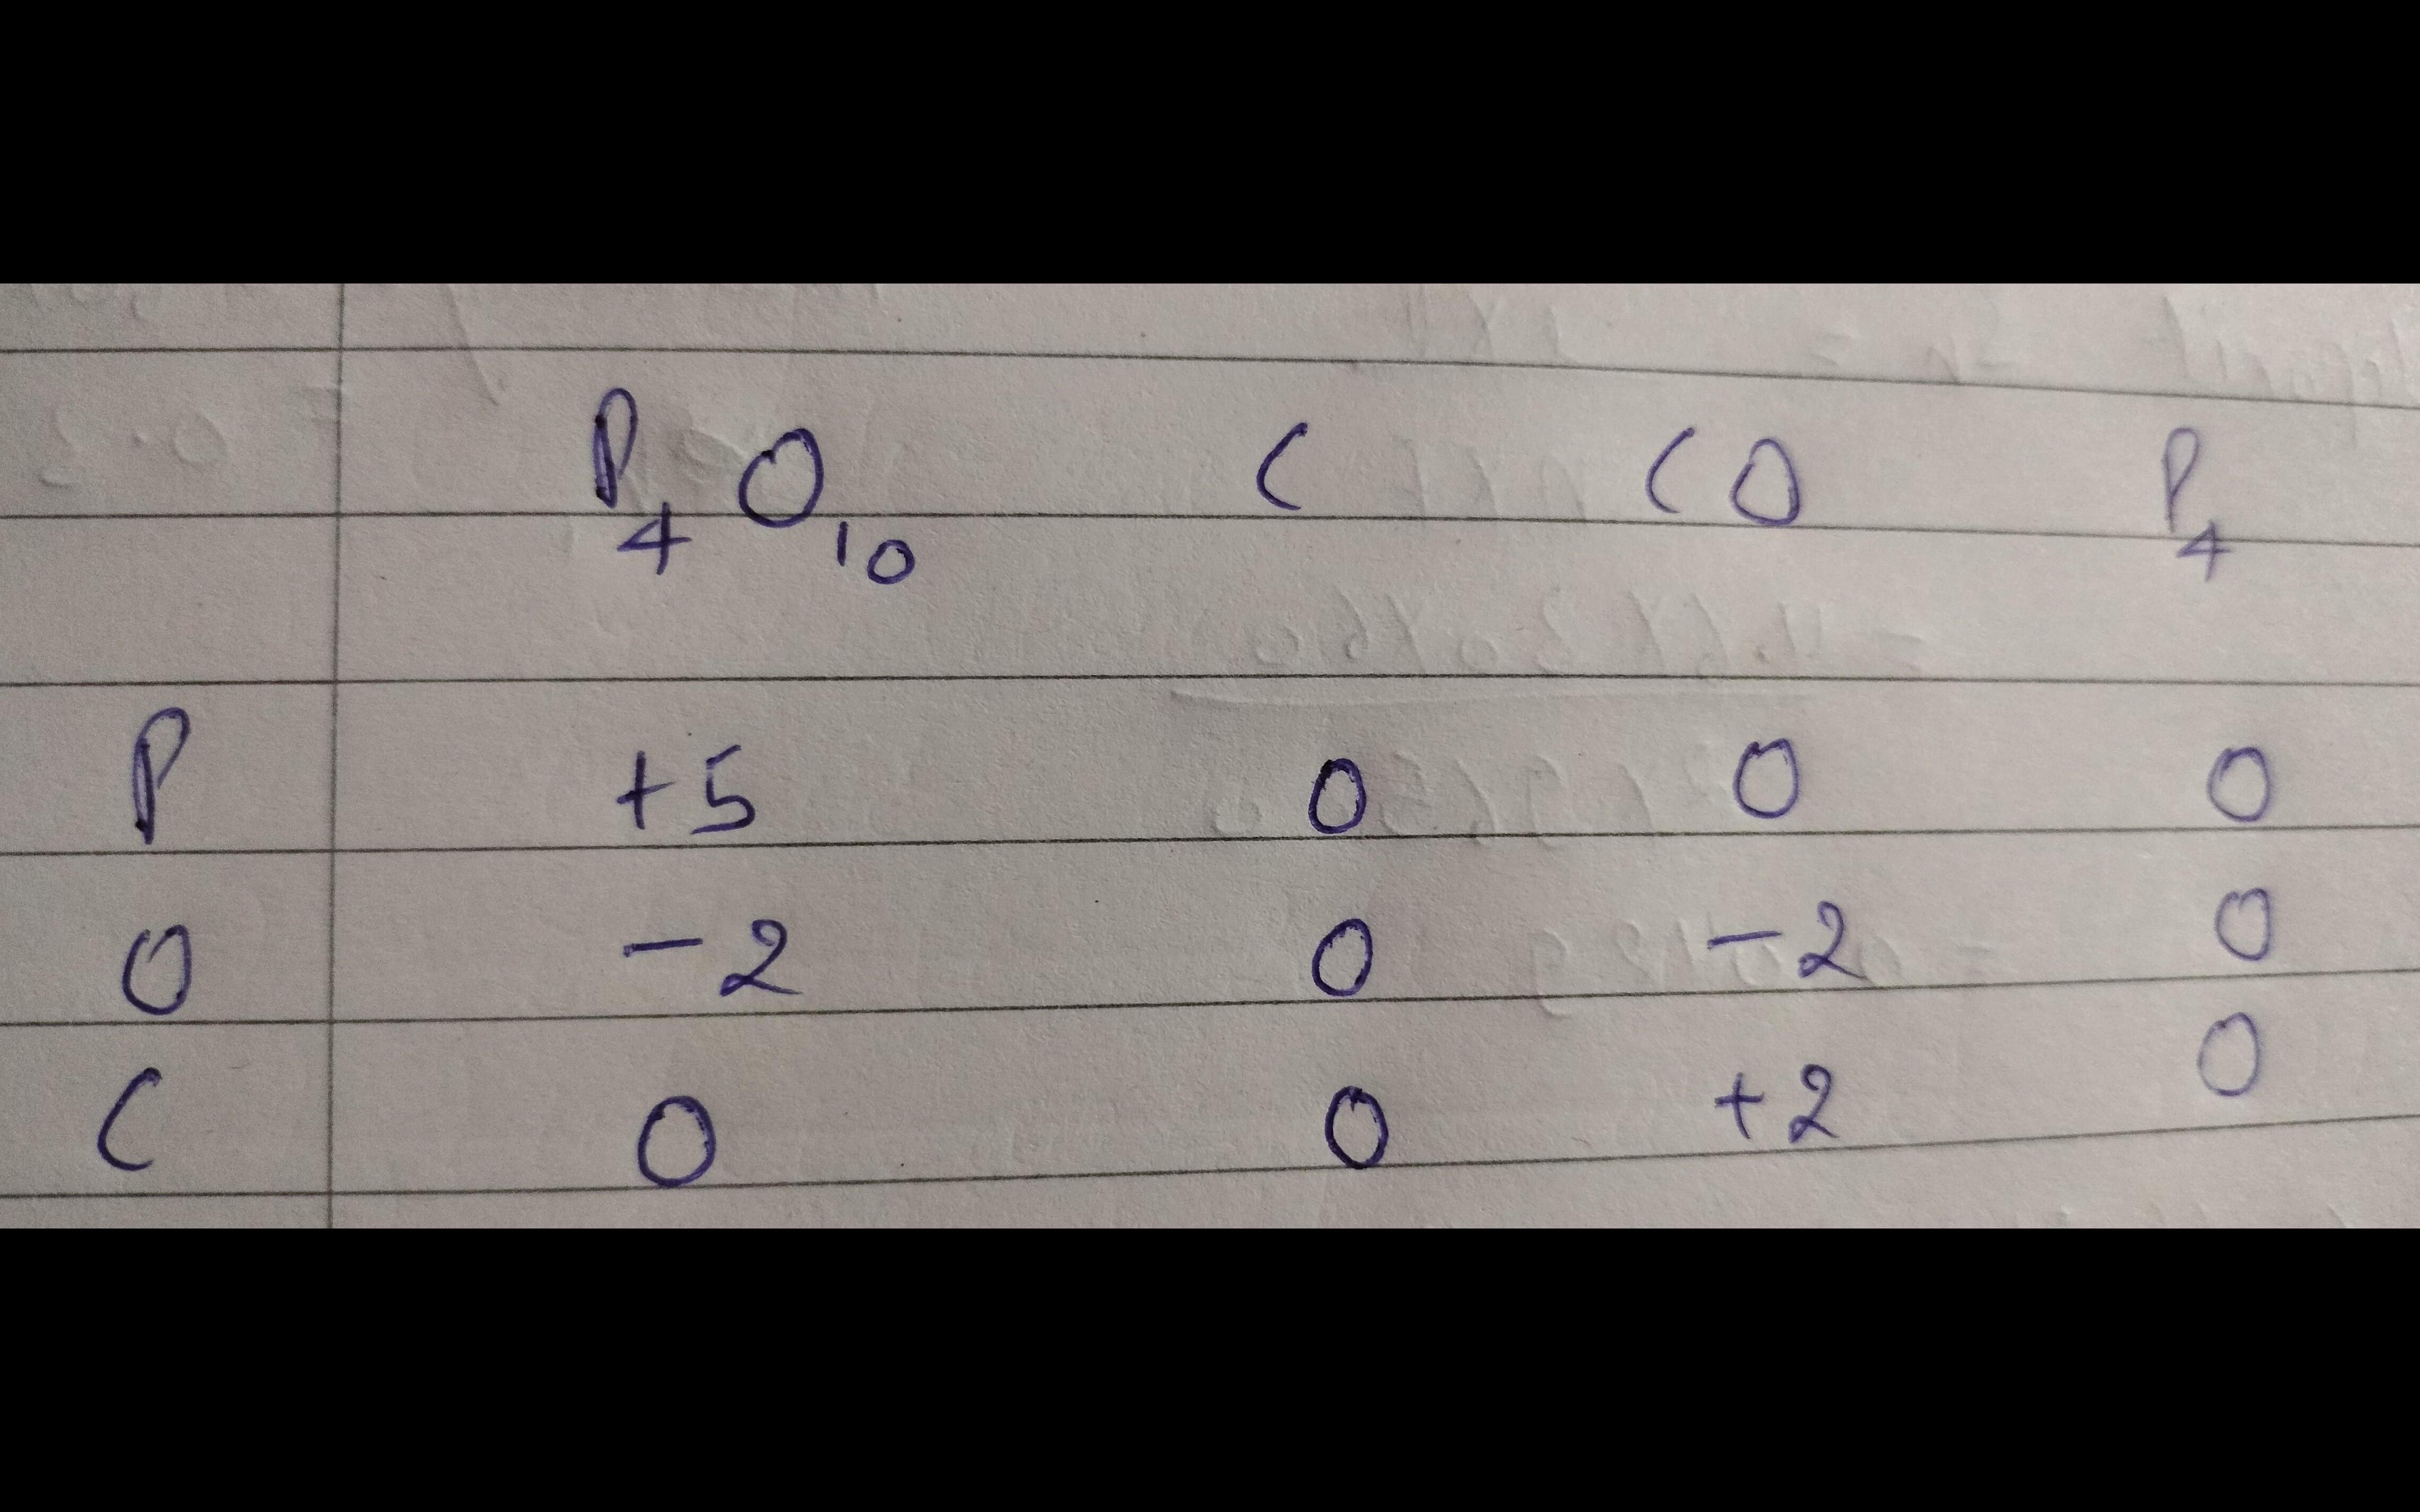 P4O10 C CO P4
P +5 0 0 0
O -2 0 -2 0
C 0 0 +2 0